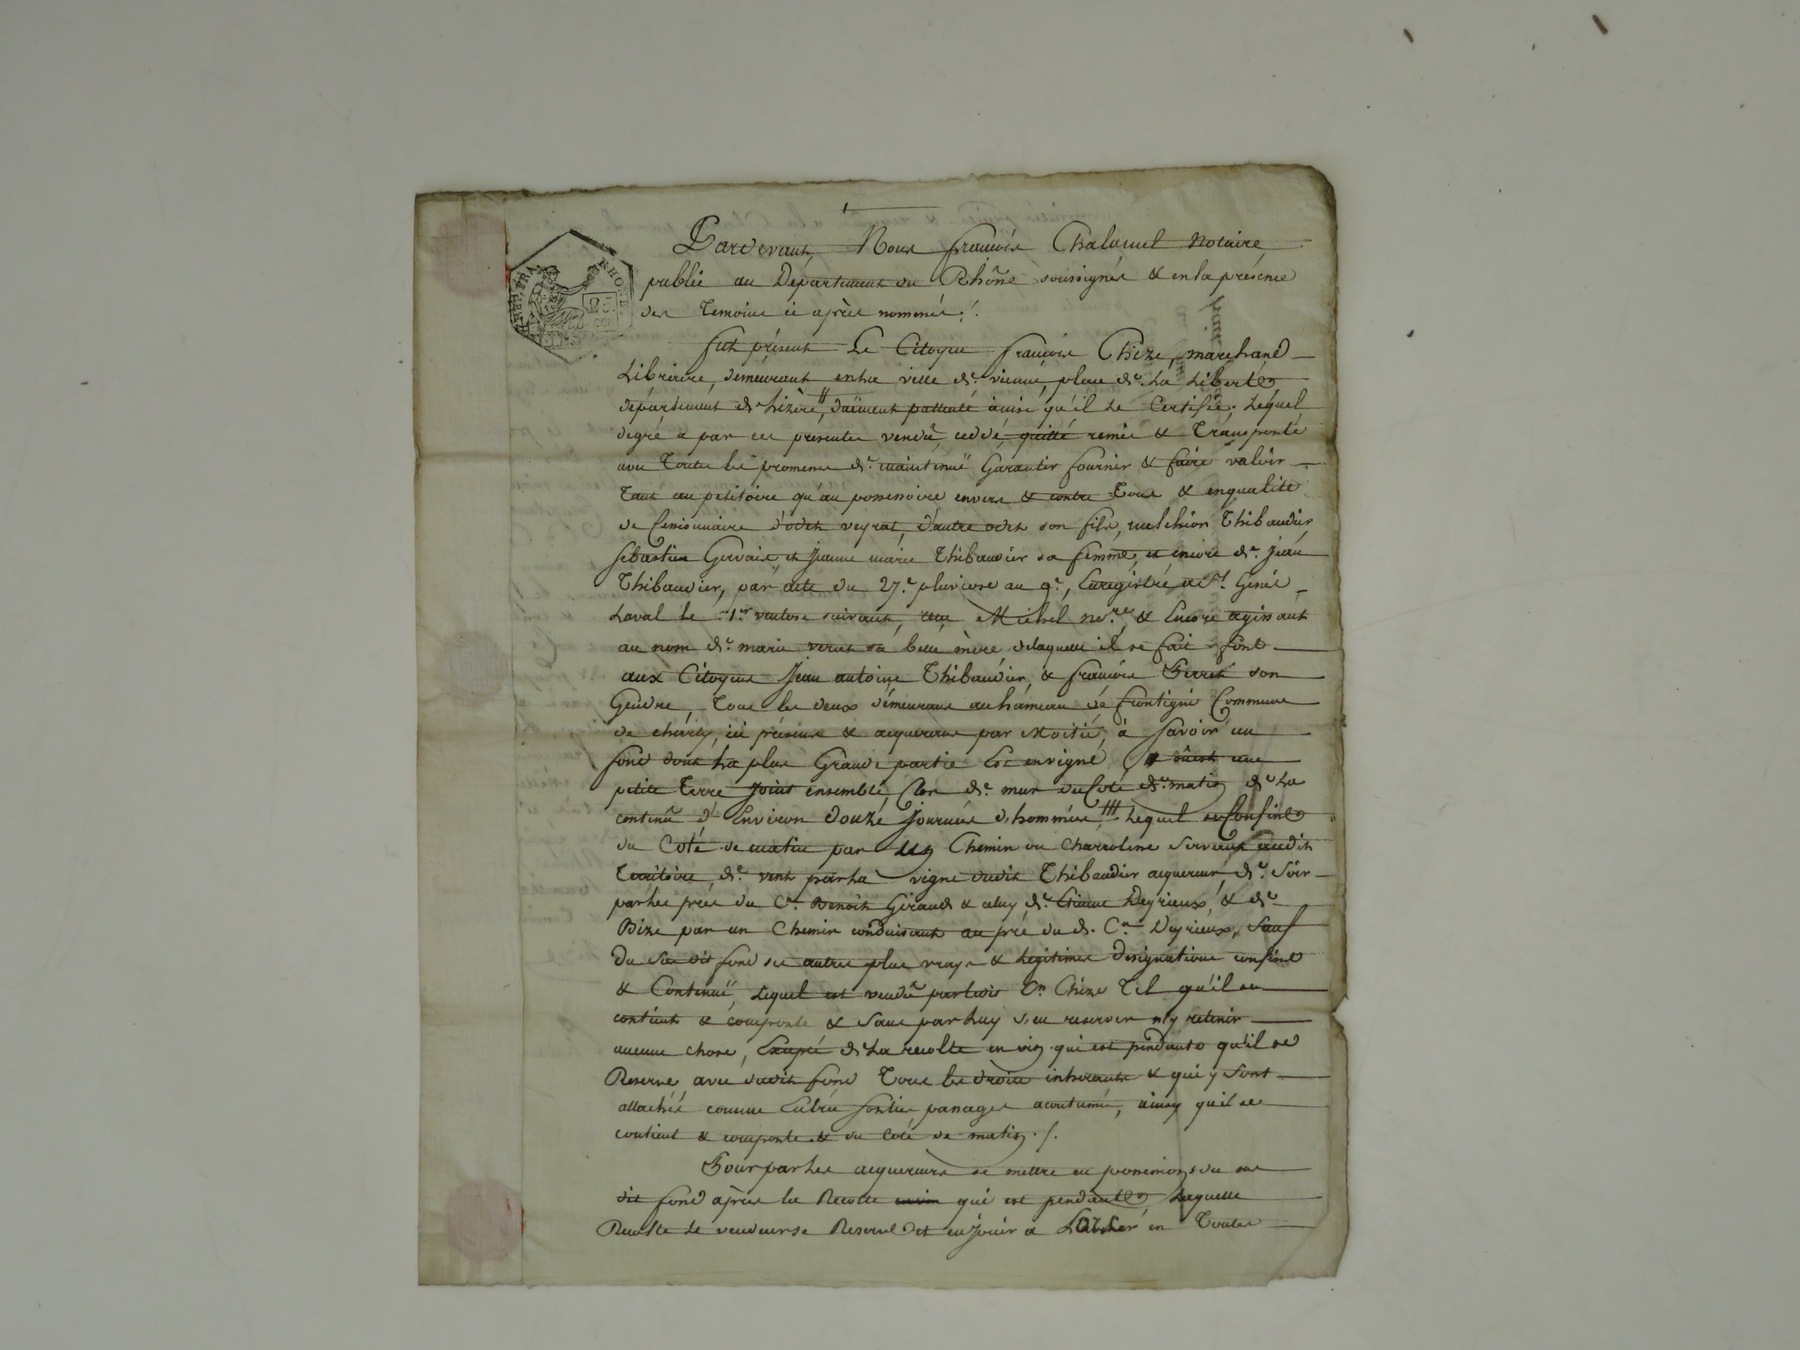 Pardevant Nous françois Chalamel Notaire
public au Departement du Rhône soussigné & en la présence
des Temoins ci après nommés :
fut présent Le Citoyen françois Chize, marchand
Libraire, demeurant en la ville de vienne, place de La Liberté
département de Lizère, düement pattenté ainsi qu'il Le Certifie, Lequel
degré a par ces presentes vendu, ceddé, quitté remis & Transporté
avec Toutes les promesses de maintenüe Garantir fournir & faire valoir
Tant au petitoire qu'au possessoire envers & contre Tous & enqualité
de Cessionnaire d'odet veyrat, d'autre odet son fils, melchior Thibaudier,
sebastien Gervais, et Jeanne marie Thibaudier sa femme, et encore de Jean
Thibaudier, par acte du 27.e pluviose an 9.e, Enregistré a St. Genis
Laval le 1.er ventose suivant, reçu Michel no.re, & Encore agissant
au nom de marie veret sa belle mère delaquelle il se fait fort
aux Citoyens Jean antoine Thibaudier, & françois Perret son
Gendre, Tous les deux démeurans au hameau de frontigni Commune
de chârly, ici présens & acquereurs par Moitié, à savoir un
fond dont La plus Grande partie Est envigné, & une
petite Terre Joint ensemble, Clos de mur du Coté de matin de La
continüe d'Environ douze Journées d'hommées, Lequel se Confine
du Coté de matin par un Chemin ou Charroliere servant audit
Territoire, de vent par La vigne dudit Thibaudier acquereur, de Soir
par Les prés du Cn. Benoit Giraud & celuy de Etienne Deyrieux, & de
Bize par un Chemin conduisant au pré du d. Cn Deyrieux, Sauf
Du Sus dit fond ses autres plus vrays & Legitimes designations confins
& Continüe, Lequel est vendu par Ledit Cn Chize Tel qu'il se
contient & comporte & sans par Luy s'en reserver n'y retenir
aucune chose, Excepté de La recolte en vin qui est pendante qu'il se
Reserve, avec dudit fond Tous les droits inherants & qui y sont
attachés comme Entrées sorties passages acoutumés, ainsy qu'il se
contient & comporte & du Coté de matin.
Pour par Les acquereurs se mettre en possession du sus
dit fond après la Recolte qui est pendante Laquelle
Recolte Le vendeur se Reserve et en Jouir a en Toutes